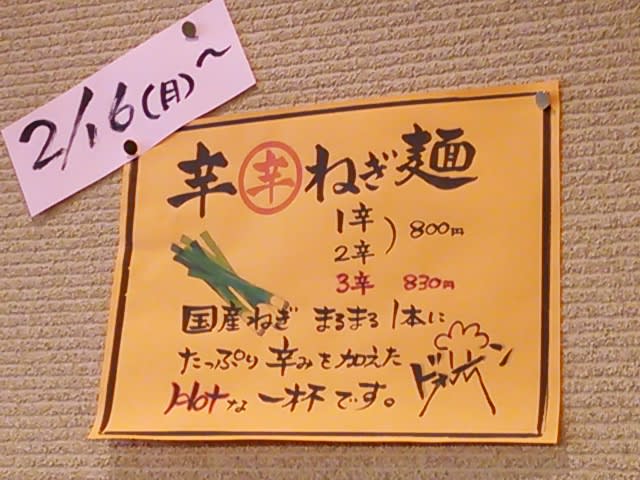 2/16(月)~
辛辛ねぎ麺
1辛
2辛
800円
3辛 830円
国産ねぎ まるまる1本に
たっぷり辛みを加えた
Hotな一杯です。